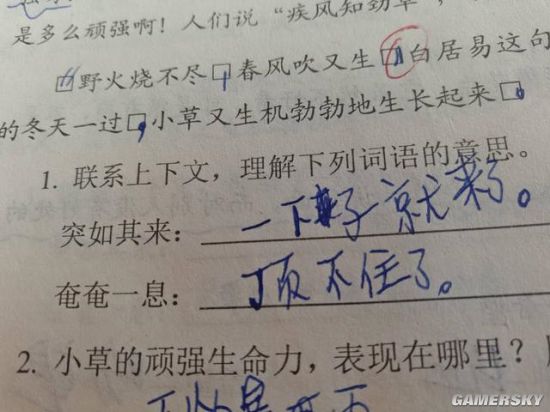 是多么顽强啊！人们说“疾风知劲草”，
“野火烧不尽，春风吹又生”白居易这句
的冬天一过，小草又生机勃勃地生长起来。
1. 联系上下文，理解下列词语的意思。
突如其来：一下子就来了。
奄奄一息：顶不住了。
2. 小草的顽强生命力，表现在哪里？
GAMERSKY